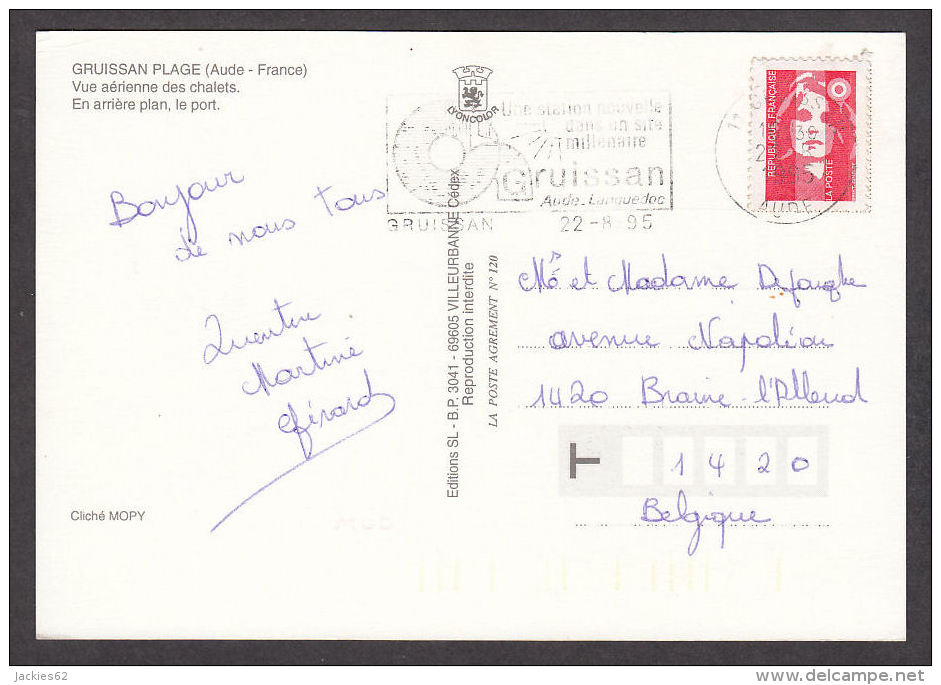 GRUISSAN PLAGE (Aude - France)
Vue aérienne des chalets.
En arrière plan, le port.
Bonjour
de nous tous
Quentin
Martine
Gérard
Cliché MOPY
LYONCOLOR
Editions SL - B.P. 3041 - 69605 VILLEURBANNE Cédex
Reproduction interdite
LA POSTE AGREMENT N° 120
Une station nouvelle
dans un site
millenaire
Gruissan
Aude. Languedoc
GRUISSAN 22-8 95
REPUBLIQUE FRANÇAISE
LA POSTE
AUDE
Mr et Madame
avenue Napoléon
1420 Braine-l'Alleud
T 1420
Belgique
jackies62
www.delcampe.net